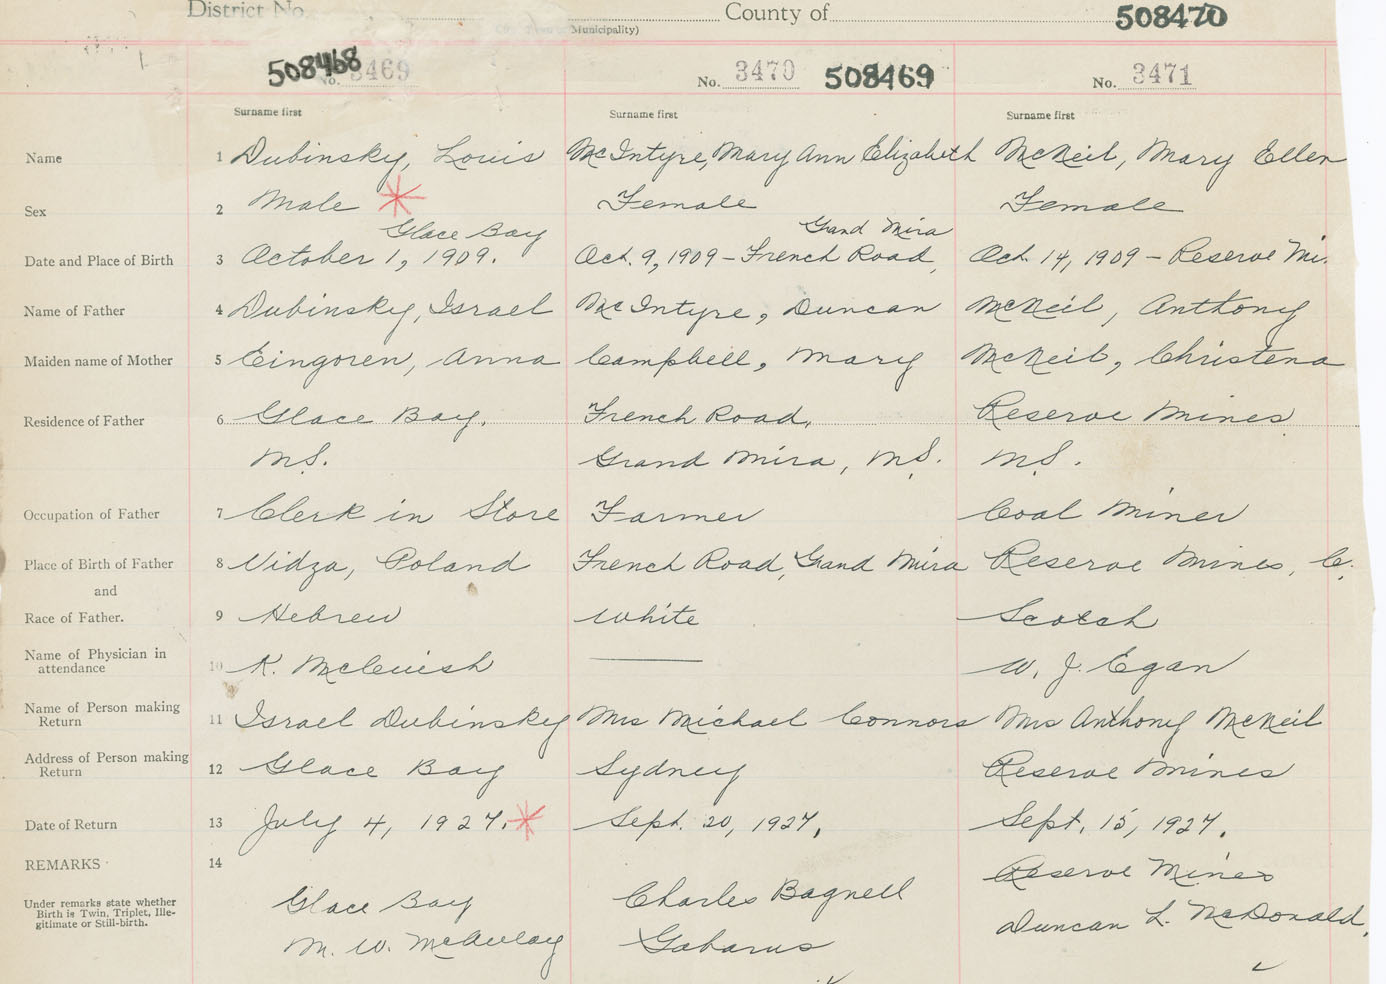 District No. County of 508470
Municipality)
508468 No. 3469 No. 3470 508469 No. 3471
Surname first Surname first Surname first
Name 1 Dubinsky, Louis McIntyre, Mary Ann Elizabeth McNeil, Mary Ellen
Sex 2 Male Female Female
Glace Bay Grand Mira
Date and Place of Birth 3 October 1, 1909. Oct. 9, 1909 - French Road, Oct. 14, 1909 - Reserve Mi.
Name of Father 4 Dubinsky, Israel McIntyre, Duncan McNeil, Anthony
Maiden name of Mother 5 Eingoren, Anna Campbell, Mary McNeil, Christena
Residence of Father 6 Glace Bay. French Road, Reserve Mines
N.S. Grand Mira, N.S. N.S.
Occupation of Father 7 Clerk in Store Farmer Coal Miner
Place of Birth of Father 8 Vidza, Poland French Road, Grand Mira Reserve Mines, C.
and
Race of Father. 9 Hebrew White Scotch
Name of Physician in
attendance 10 K. McCuish W. J. Egan
Name of Person making
Return 11 Israel Dubinsky Mrs Michael Connors Mrs Anthony McNeil
Address of Person making
Return 12 Glace Bay Sydney Reserve Mines
Date of Return 13 July 4, 1927. Sept. 20, 1927. Sept. 15, 1927.
REMARKS 14 Reserve Mines
Under remarks state whether
Birth is Twin, Triplet, Ille-
gitimate or Still-birth.
Glace Bay Charles Bagnell Duncan L. McDonald,
M. W. McAulay Gabarus